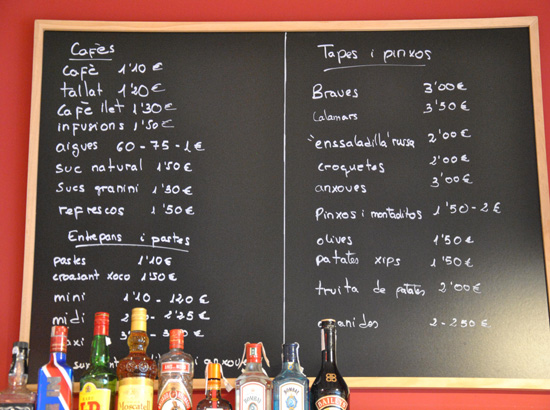 Cafès
cafè 1'10 €
tallat 1'20 €
cafè llet 1'30 €
infusions 1'50 €
aigues 60 - 75 - 1 €
suc natural 1'50 €
Sucs granini 1'50 €
refrescos 1'50 €
Entrepans i pastes
pastes 1'10 €
croasant xoco 1'50 €
mini 1'10 - 1'20 €
midi
Tapes i pinxos
Braves 3'00 €
Calamars 3'50 €
"enssaladilla" russa 2'00 €
croquetes 2'00 €
anxoves 3'00 €
Pinxos i montaditos 1'50 - 2 €
olives 1'50 €
patates xips 1'50 €
truita de patates 2'00 €
2 - 2'50 €
J&B
Moscatell
BOMBAY
BAILEYS